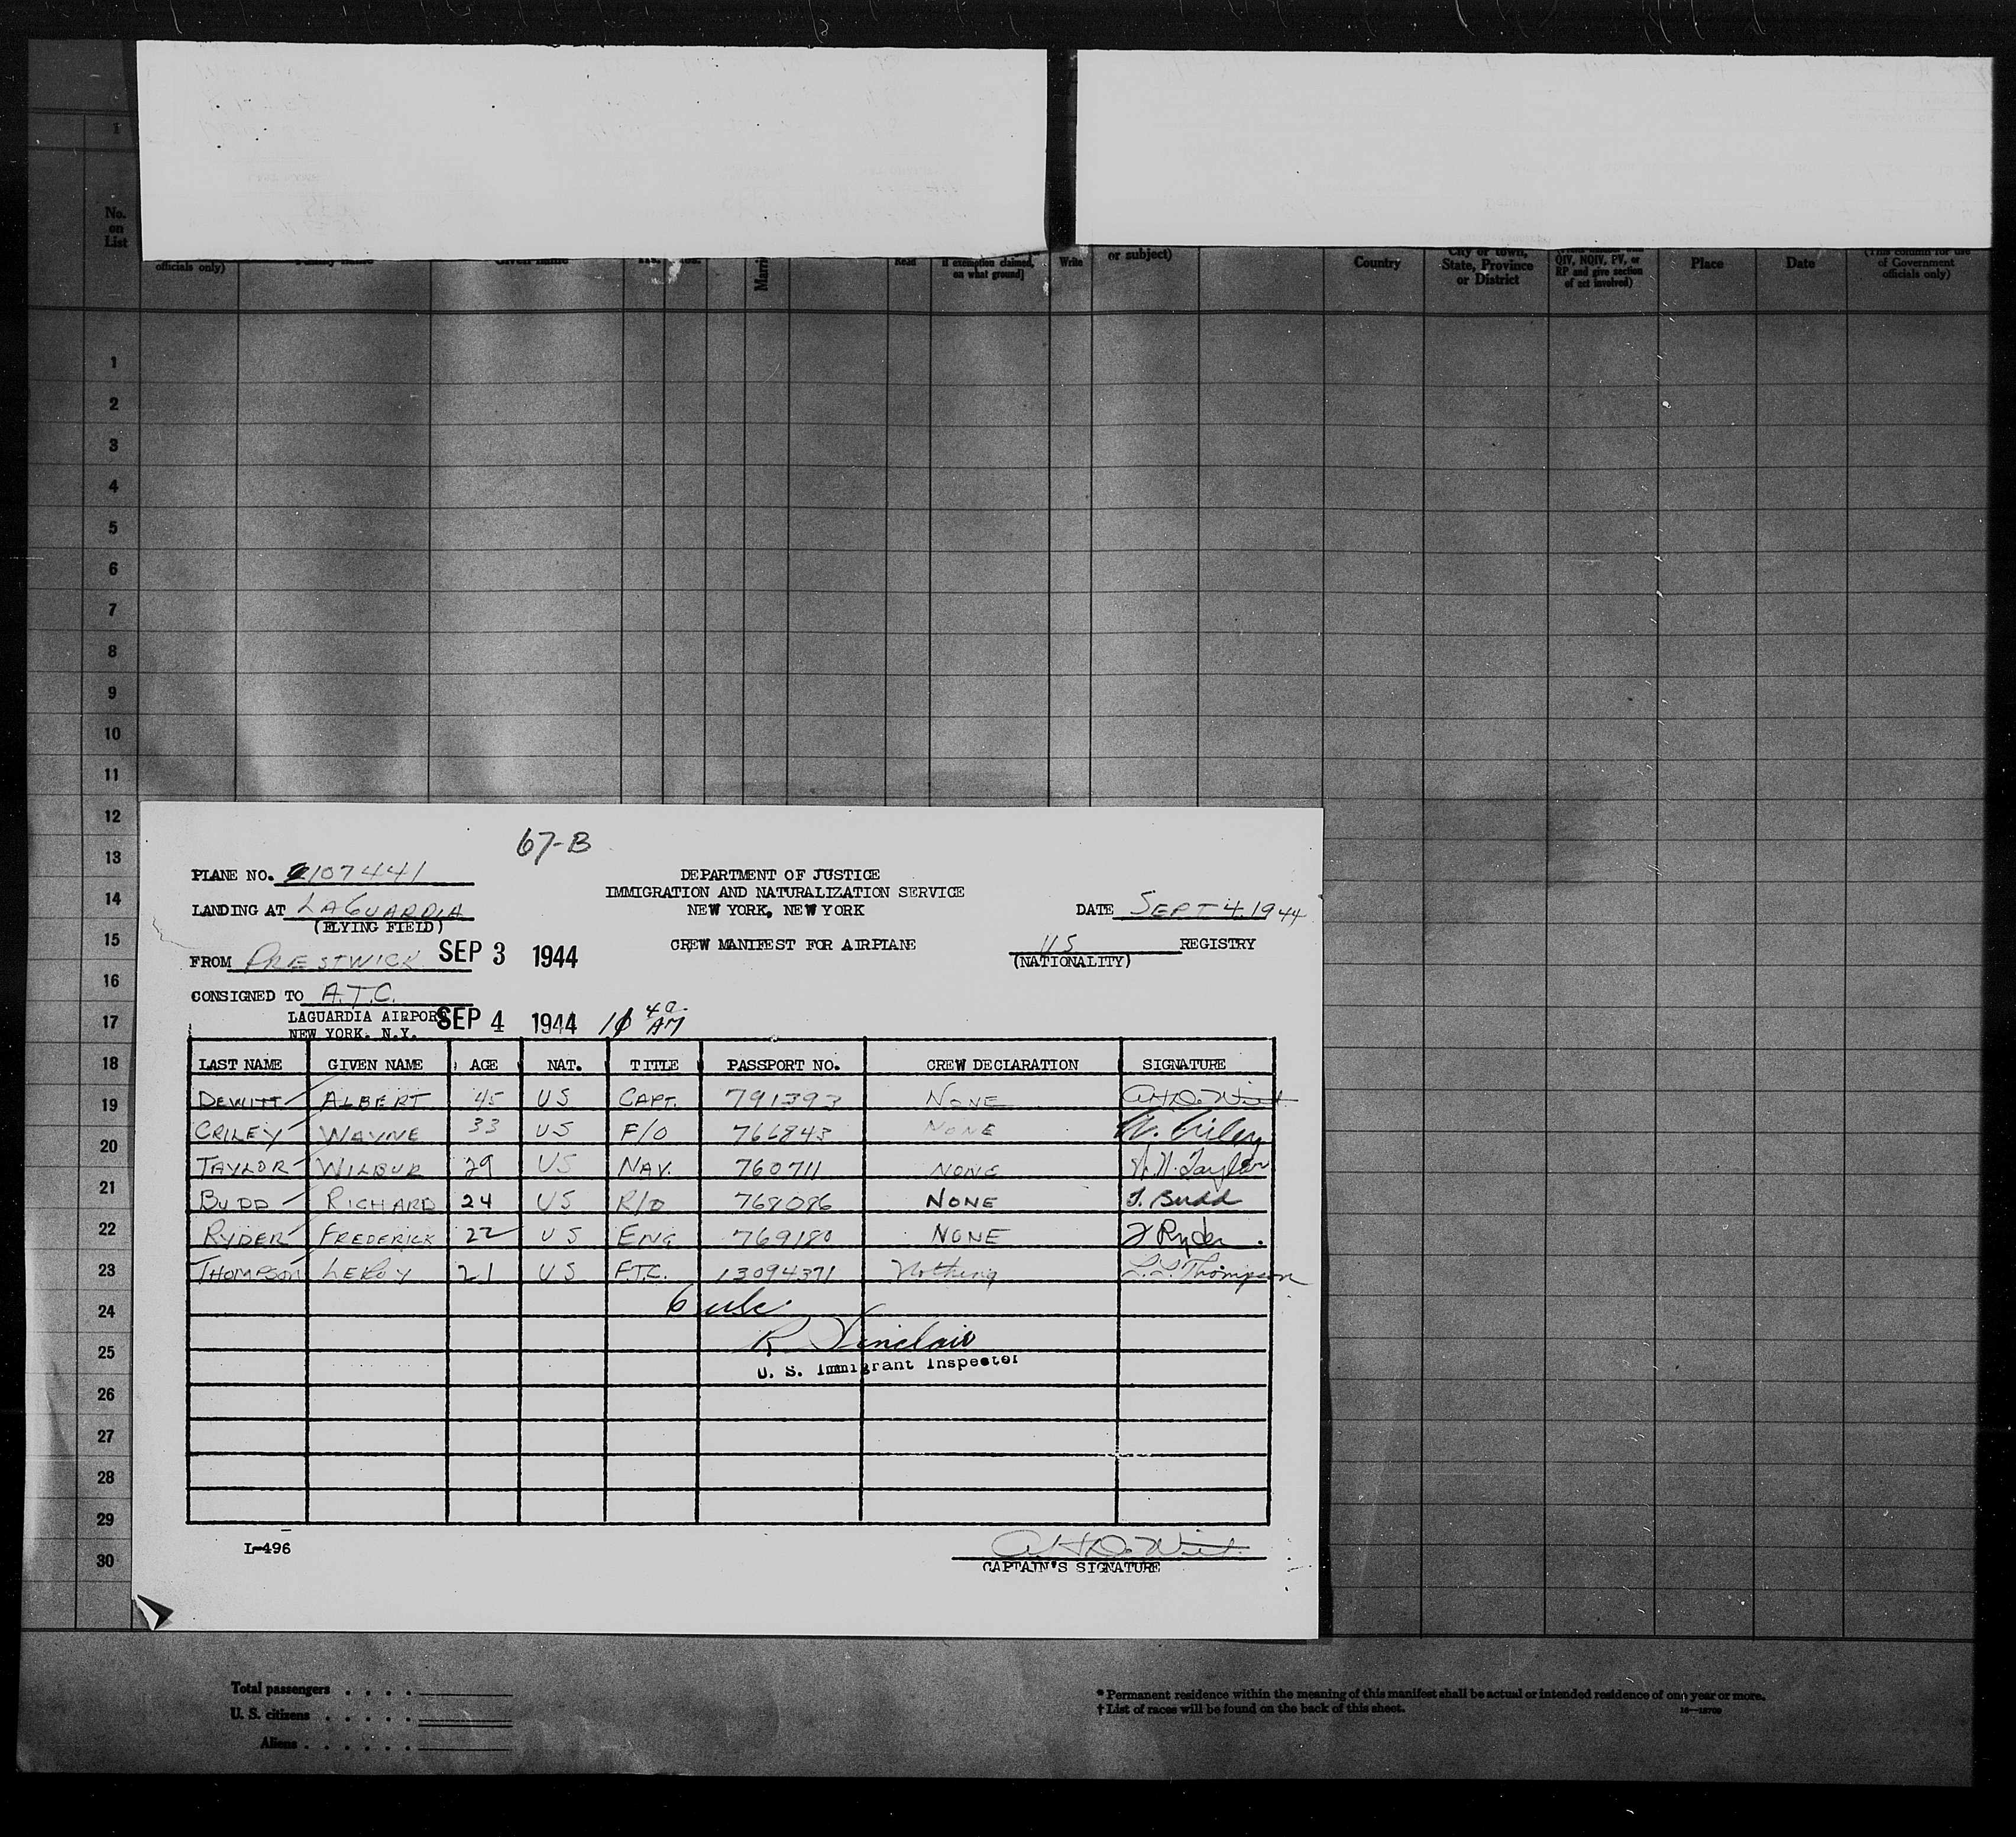 1
No.
on
List
officials only)
Given name
Read
if exemption claimed,
on what ground)
Write
or subject)
Country
City or town,
State, Province
or District
QIV, NQIV, PV, or
RP and give section
of act involved)
Place
Date
(This column for use
of Government
officials only)
1
2
3
4
5
6
7
8
9
10
11
12
13
14
15
16
17
18
19
20
21
22
23
24
25
26
27
28
29
30
67-B
PLANE NO. 2107441
DEPARTMENT OF JUSTICE
IMMIGRATION AND NATURALIZATION SERVICE
LANDING AT LAGUARDIA NEW YORK, NEW YORK DATE SEPT 4, 1944
(FLYING FIELD)
CREW MANIFEST FOR AIRPLANE US REGISTRY
FROM PRESTWICK SEP 3 1944 (NATIONALITY)
CONSIGNED TO A.T.C.
LAGUARDIA AIRPORT SEP 4 1944 40 AM
NEW YORK, N.Y.
LAST NAME GIVEN NAME AGE NAT. TITLE PASSPORT NO. CREW DECLARATION SIGNATURE
DEWITT ALBERT 45 US CAPT. 791393 NONE A H DeWitt
CRILEY WAYNE 33 US F/O 766843 NONE W. Criley
TAYLOR WILBUR 29 US NAV. 760711 NONE W. H. Taylor
BUDD RICHARD 24 US R/O 768086 NONE Budd
RYDER FREDERICK 22 US ENG 769180 NONE F Ryder
THOMPSON LEROY 21 US F.T.C. 13094371 Nothing L. L. Thompson
6 usc
R Sinclair
U. S. Immigrant Inspector
L-496
A H DeWitt
CAPTAIN'S SIGNATURE
Total passengers . . . .
U. S. citizens . . . . .
Aliens . . . . . .
* Permanent residence within the meaning of this manifest shall be actual or intended residence of one year or more.
† List of races will be found on the back of this sheet.